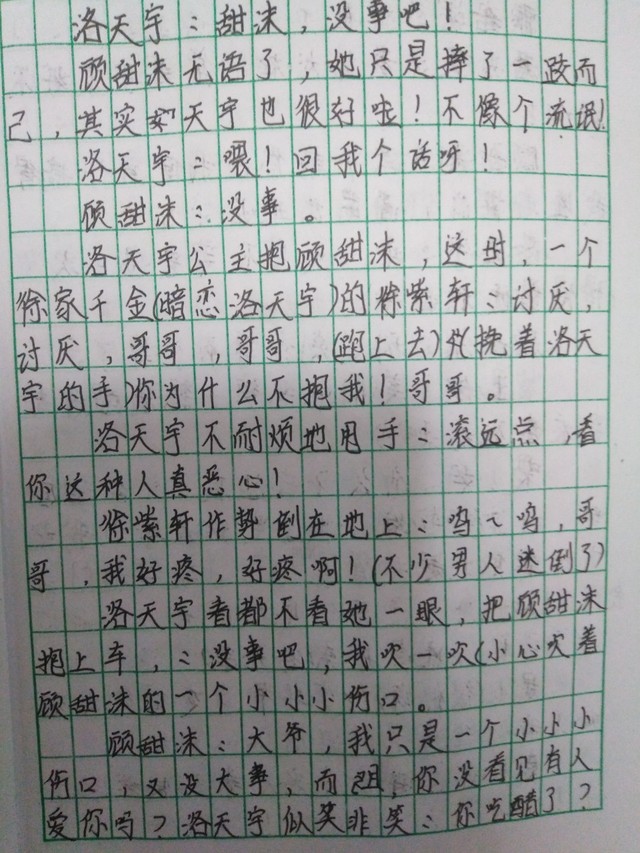 洛天宇：甜沫，没事吧！
顾甜沫无语了，她只是摔了一跤而
己，其实如天宇也很好啦！不像个流氓！
洛天宇：喂！回我个话呀！
顾甜沫：没事。
洛天宇公主抱顾甜沫，这时，一个
徐家千金(暗恋洛天宇)的徐紫轩：讨厌，
讨厌，哥哥，哥哥，(跑上去)挽着洛天
宇的手)你为什么不抱我！哥哥。
洛天宇不耐烦地甩手：滚远点，看
你这种人真恶心！
徐紫轩作势倒在地上：呜~呜，哥
哥，我好疼，好疼啊！(不少男人迷倒了)
洛天宇看都不看她一眼，把顾甜沫
抱上车，：没事吧，我吹一吹(小心吹着
顾甜沫的一个小小小伤口。
顾甜沫：大爷，我只是一个小小小
伤口，又没大事，而且，你没看见有人
爱你吗？洛天宇似笑非笑：你吃醋了？